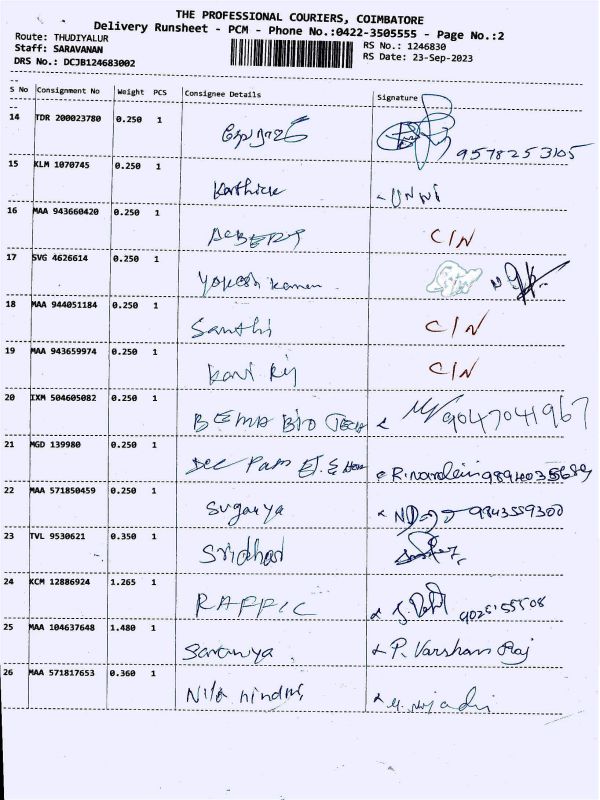 THE PROFESSIONAL COURIERS, COIMBATORE
Delivery Runsheet - PCM - Phone No.:0422-3505555 - Page No.:2
Route: THUDIYALUR
RS No.: 1246830
Staff: SARAVANAN
RS Date: 23-Sep-2023
DRS No.: DCJB124683002
S No Consignment No Weight PCS Consignee Details Signature
14 TDR 200023780 0.250 1
9578253105
15 KLM 1070745 0.250 1
Karthick UNNI
16 MAA 943660420 0.250 1
C/N
17 SVG 4626614 0.250 1
18 MAA 944051184 0.250 1
Santhi C/N
19 MAA 943659974 0.250 1
C/N
20 IXM 504605082 0.250 1
BEMA BIO TECH 9047041967
21 MGD 139980 0.250 1
22 MAA 571850459 0.250 1
Suganya 9843559300
23 TVL 9530621 0.350 1
Sridhar
24 KCM 12886924 1.265 1
RAFFIC
25 MAA 104637648 1.480 1
Saranya P. Varshan Raj
26 MAA 571817653 0.360 1